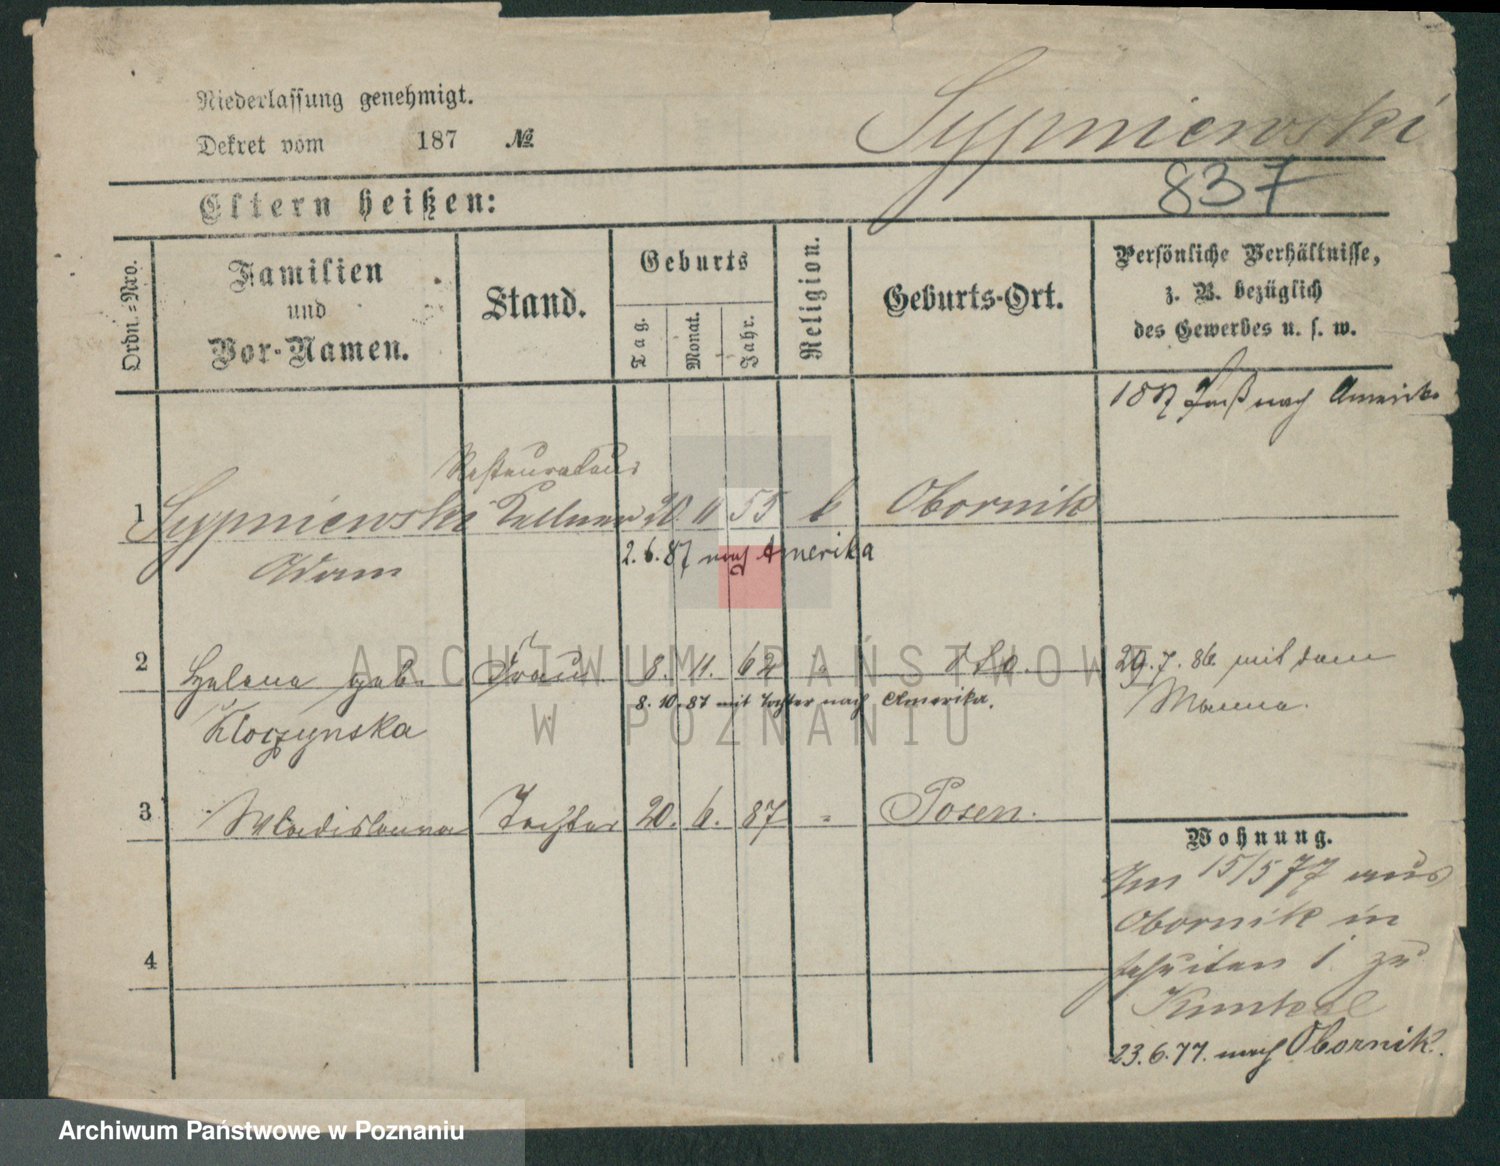 Niederlassung genehmigt.
Dekret vom 187 №
Sypniewski
837
Eltern heißen:
Ordn.-Nro.
Familien
und
Vor-Namen.
Stand.
Geburts
Tag.
Monat.
Jahr.
Religion.
Geburts-Ort.
Persönliche Verhältnisse,
z. B. bezüglich
des Gewerbes u. s. w.
nach Amerika
Restaurateur
1 Sypniewski Kellner 20. 11 55 k Obornik
Adam
2.6.87 nach Amerika
2 Helena geb. Frau 8. 11. 62 " dto. 29.7.86 mit dem
8.10.87 mit Tochter nach Amerika.
Manne.
Kloczynska
3 Wladislawa Tochter 20. 6. 87 " Posen.
Wohnung.
Am 15/5 77 aus
Obornik in
Jesuiten 1. zu
Kunkel
23.6.77. nach Obornik.
4
ARCHIWUM PAŃSTWOWE
W POZNANIU
Archiwum Państwowe w Poznaniu